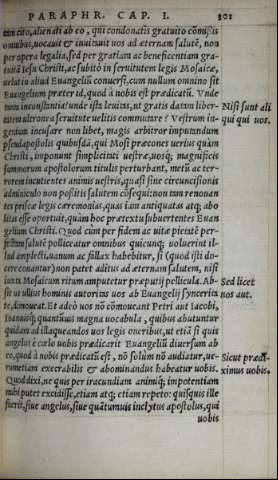 PARAPHR. CAP. I. 301
tam cito, alienati ab eo, qui condonatis gratuito cōmissis
omnibus, uocauit & inuitauit uos ad æternam salutē, non
per opera legalia, sed per gratiam ac beneficentiam gra-
tuitā Iesu Christi, ac subitò in seruitutem legis Mosaicæ,
uelut in aliud Euangeliū conuersi, cum nullum omnino sit
Euangelium præter id, quod à nobis est prædicatū. Vnde
inconstantia? unde ista leuitas, ut gratis datam liber-
tatem ultronea seruitute uelitis commutare? Vestrum in- Nisi sunt ali
genium incusare non libet, magis arbitror imputandum qui qui uos.
pseudapostolis quibusdā, qui Mosi præcones uerius quàm
Christi, imponunt simplicitati uestræ, uosq́; magnificis
summorum apostolorum titulis perturbant, metū ac ter-
rorem incutientes animis uestris, quasi sine circuncisionis
adminiculo non possitis salutem cōsequi: non tam renouan
tes priscæ legis cæremonias, quas iam antiquatas atq; abo
litas esse oportuit, quàm hoc prætextu subuertentes Euan
gelium Christi. Quod cùm per fidem ac uitæ pietatē per-
fectam salutē polliceatur omnibus quicunq; uoluerint il-
lud amplecti, uanum ac fallax habebitur, si (quod isti do-
cere conantur) non patet aditus ad æternam salutem, nisi
iuxta Mosaicum ritum amputetur præputij pellicula. Ab- Sed licet
sit ut ullius hominis autoritas uos ab Euangelij synceritа nos aut.
te, dimoueat. Et adeò uos nō cōmoueant Petri aut Iacobi,
Ioannisq́; quantūuis magna uocabula, quibus abutuntur
quidam ad illaqueandos uos legis oneribus, ut etiā si quis
angelus è cœlo uobis prædicarit Euangeliū diuersum ab
eo, quod à nobis prædicatū est, nō solum nō audiatur, ue- Sicut prædi-
rumetiam execrabilis & abominandus habeatur uobis. ximus uobis.
Quod dixi, ne quis per iracundiam animiq́; impotentiam
mihi putet excidisse, etiam atq; etiam repeto: quisquis ille
fuerit, siue angelus, siue quātumuis inclytus apostolus, qui
uobis